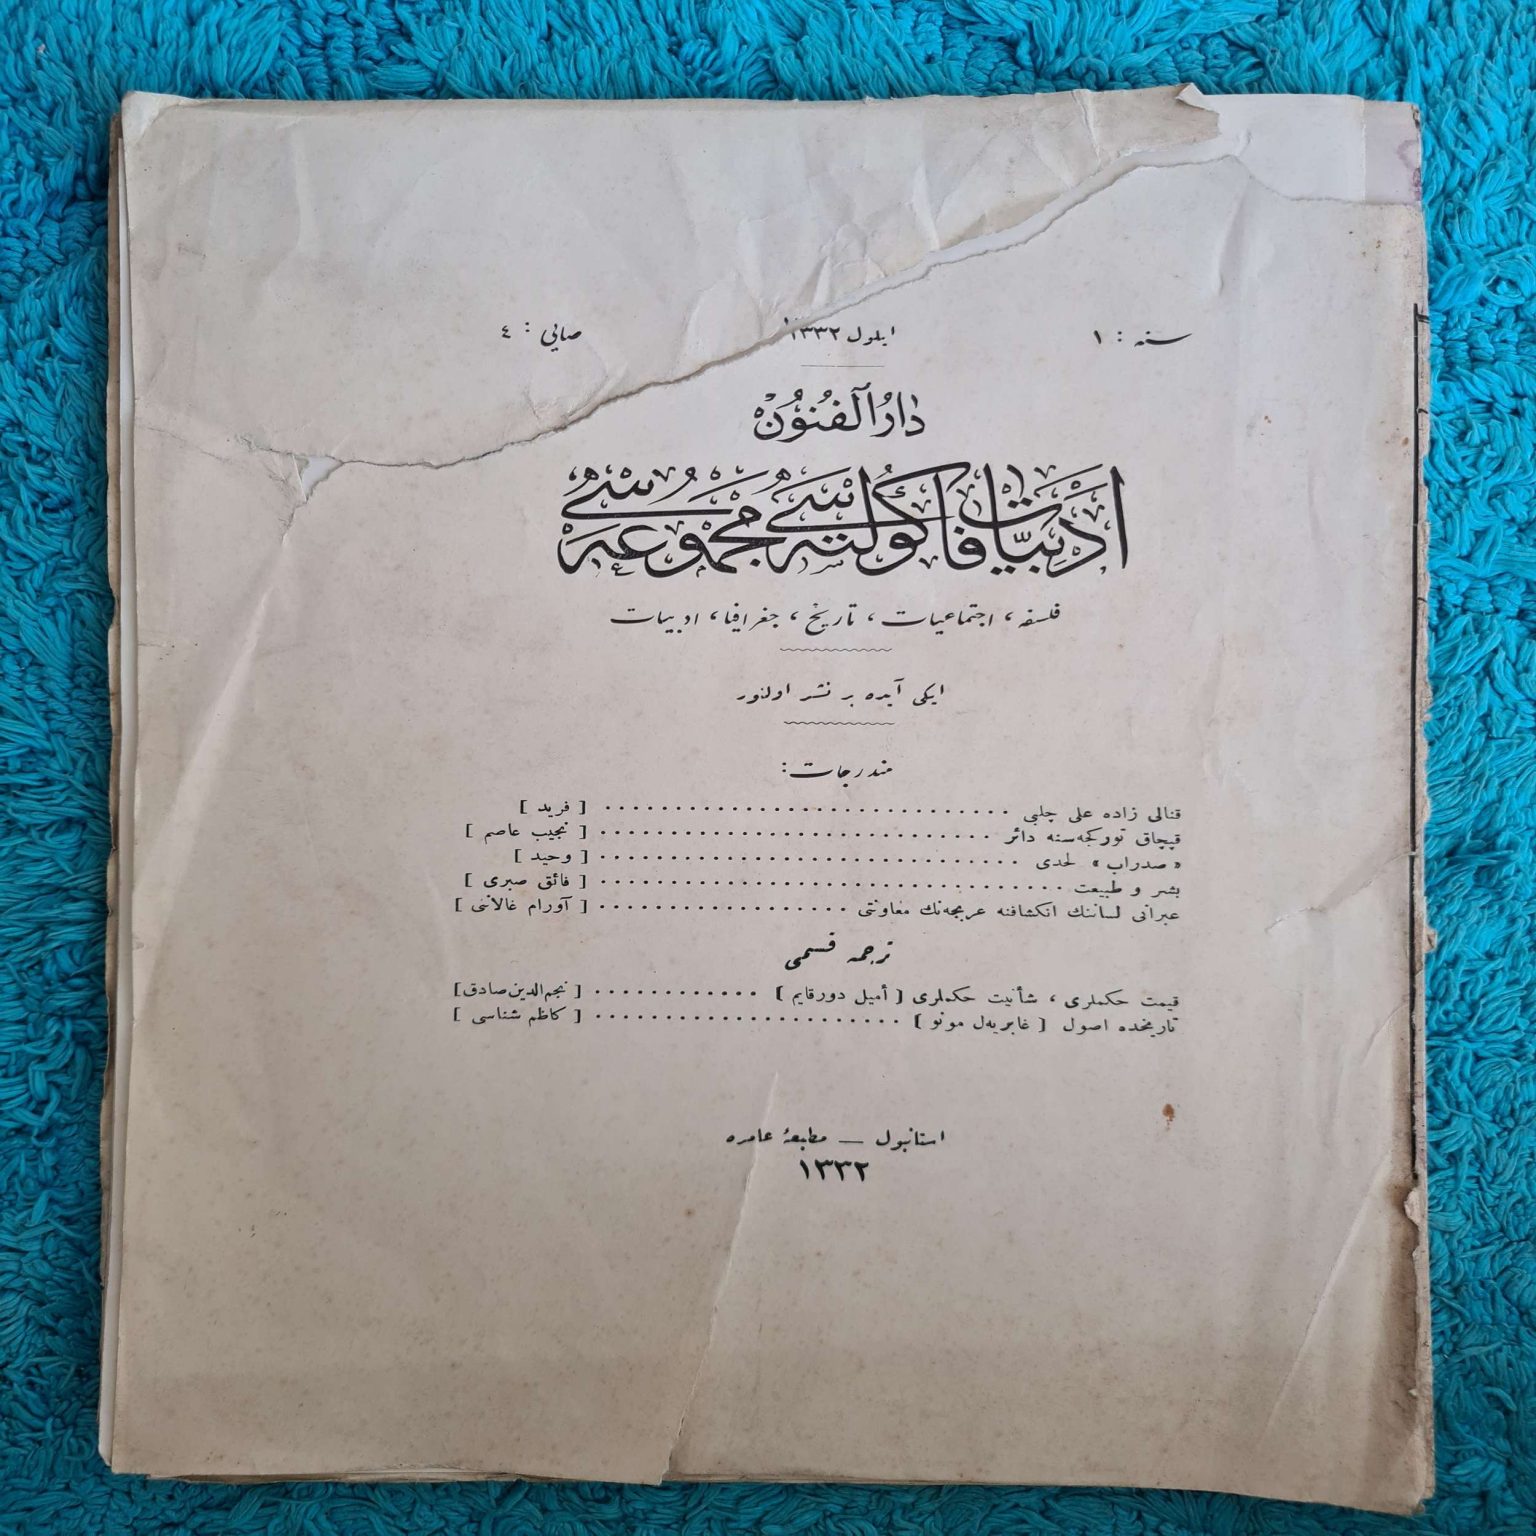 سنه : ١ ايلول ١٣٣٢ صايى : ٤
دَارُالْفُنُونْ
اَدَبِيَّات فَاكُولْتَه‌سِى مَجْمُوعَه‌سِى
فلسفه ، اجتماعيات ، تاريخ ، جغرافيا ، ادبيات
ايكى آيده بر نشر اولنور
مندرجات :
قنالى زاده على چلبى . . . . . . . . . . . . . . . . . . . . . . . . . . . . . [ فريد ]
قپچاق توركجه‌سنه دائر . . . . . . . . . . . . . . . . . . . . . . . . . . . . [ نجيب عاصم ]
« صدراب » لحدى . . . . . . . . . . . . . . . . . . . . . . . . . . . . . . [ وحيد ]
بشر و طبيعت . . . . . . . . . . . . . . . . . . . . . . . . . . . . . . . . . [ فائق صبرى ]
عبرانى لساننك انكشافنه عربجه‌نك معاونتى . . . . . . . . . . . . . . . . . . [ آورام غالانتى ]
ترجمه قسمى
قيمت حكملرى ، شأنيت حكملرى [ أميل دورقايم ] . . . . . . . . . . . . [ نجم‌الدين صادق ]
تاريخده اصول [ غابريه‌ل مونو ] . . . . . . . . . . . . . . . . . . . . . . [ كاظم شناسى ]
استانبول — مطبعۀ عامره
١٣٣٢